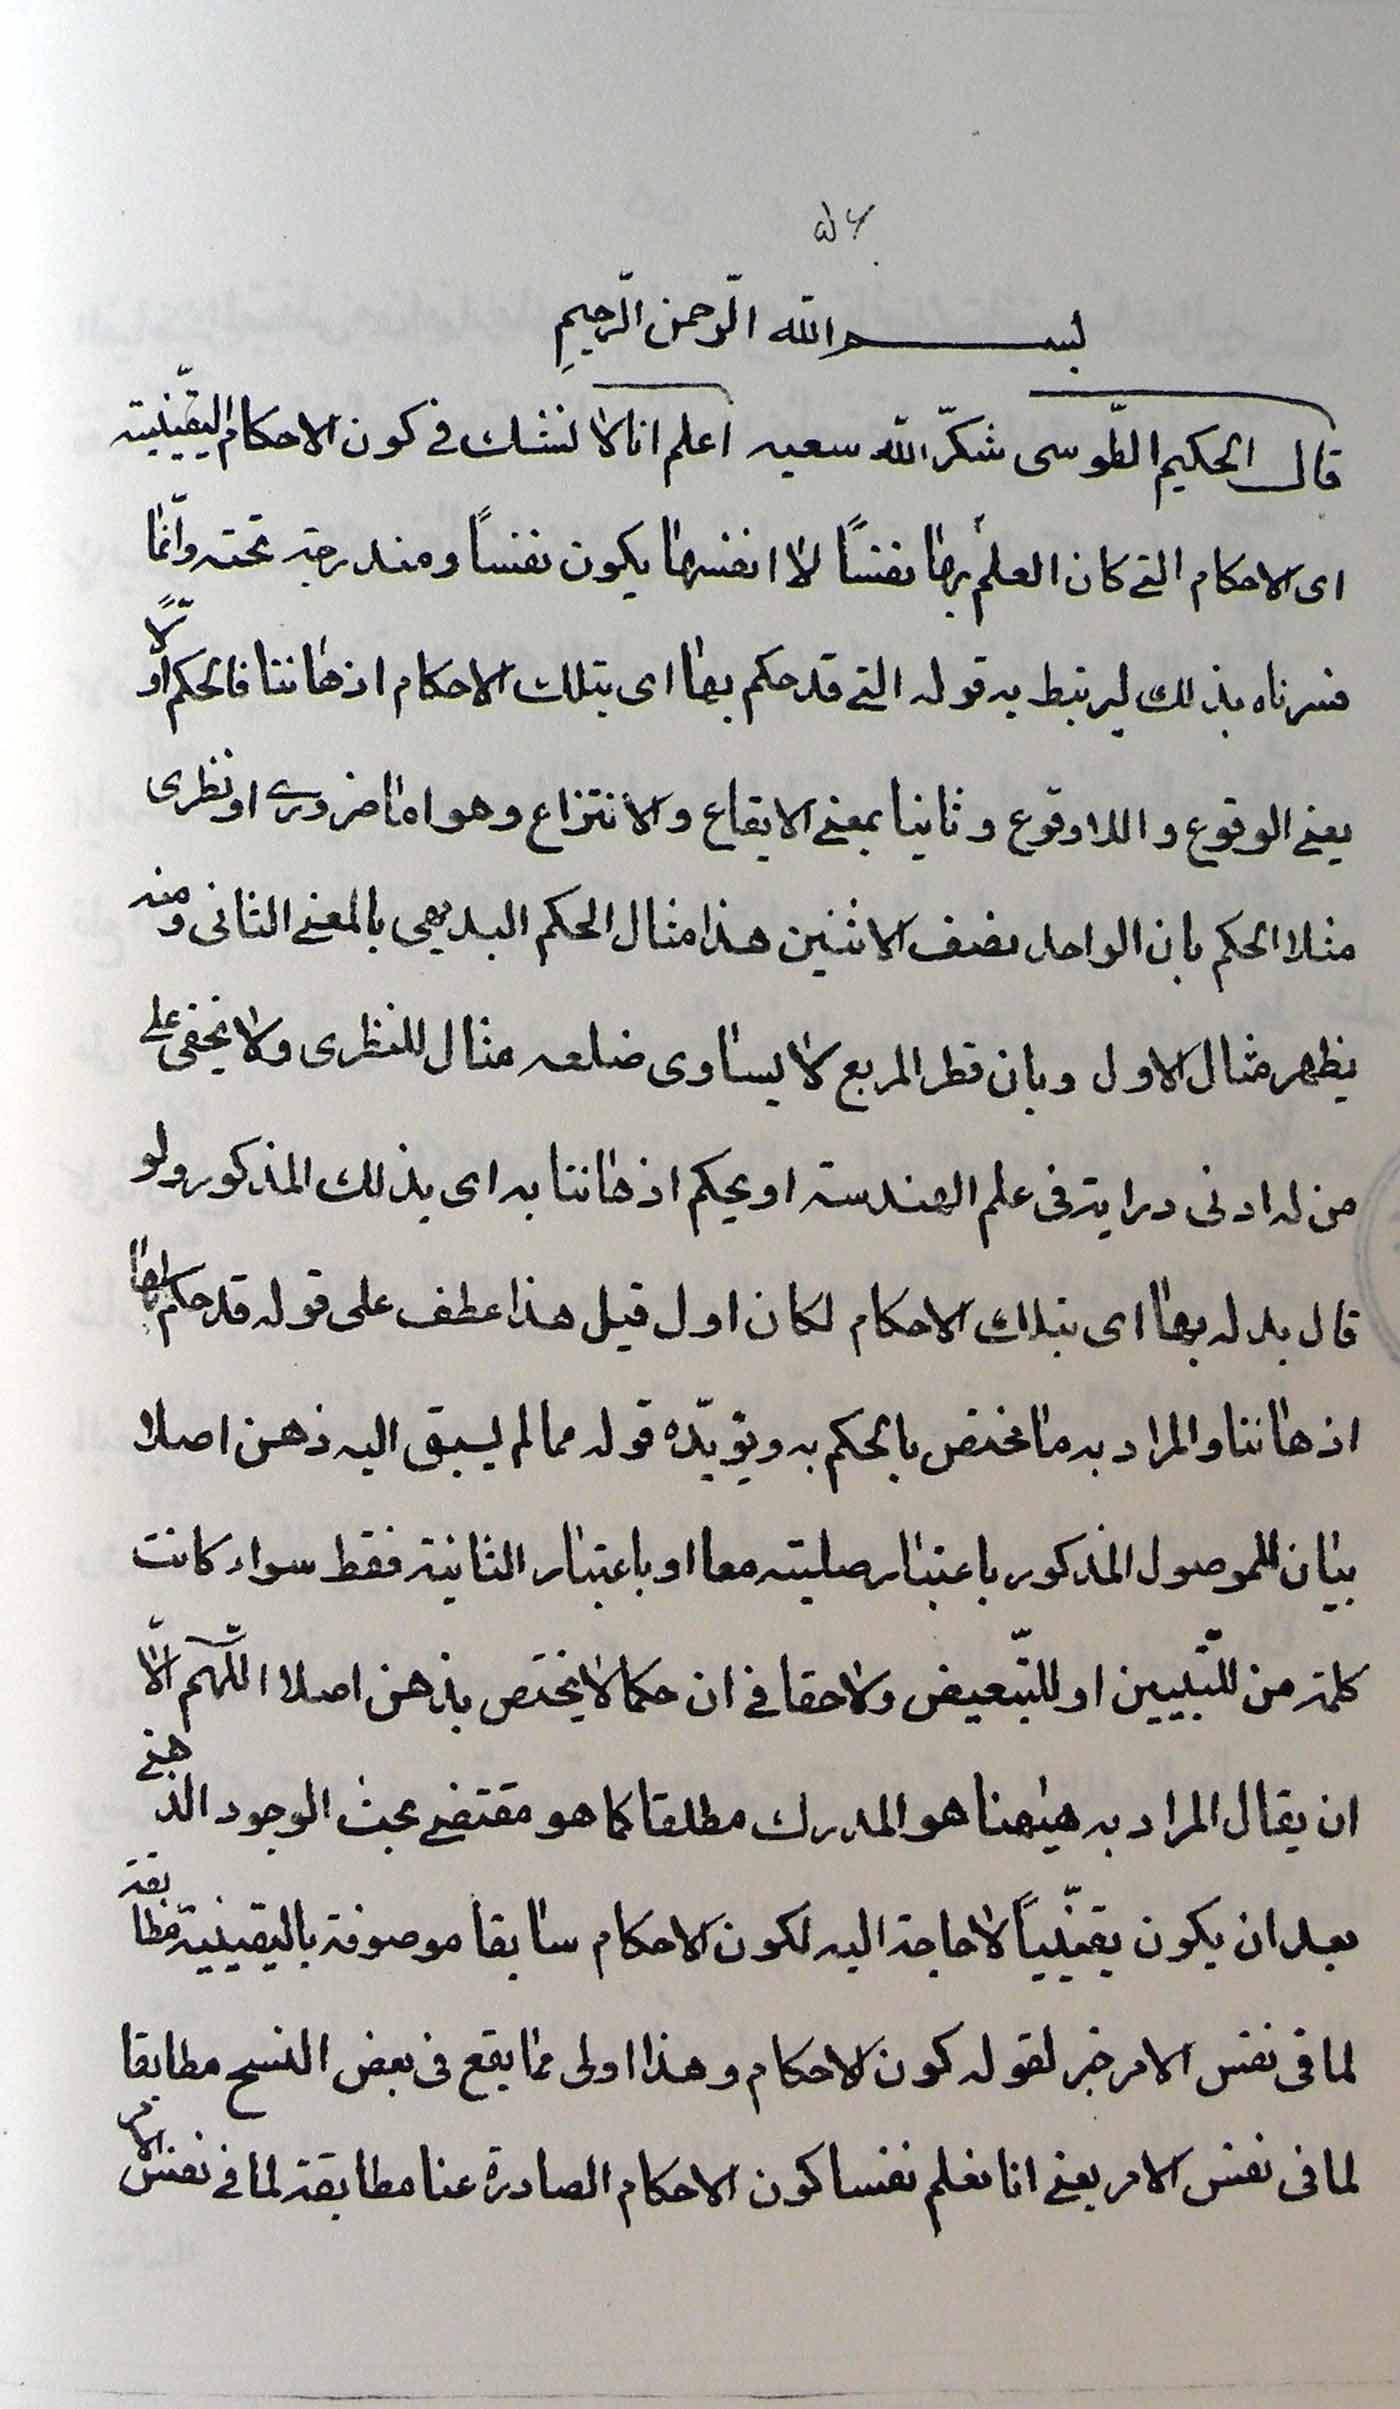 ٥٦
بسم الله الرّحمن الرّحيمِ
قال الحكيم الطّوسى شكرّ الله سعيه اعلم انا لا نشك فى كون الاحكام اليقينية
اى الاحكام التى كان العلم بها نفسًا لا انفسها يكون نفسًا ومندرجة تحته وانّما
فسرناه بذلك ليرتبط به قوله التى قد حكم بها اى بتلك الاحكام اذهاننا فالحكم اوّلاً
يعنى الوقوع واللاوقوع وثانيا بمعنى الايقاع والانتزاع وهو اما ضرورى او نظرى
مثلا الحكم بان الواحد نصف الاثنين هذا مثال الحكم البديهى بالمعنى الثانى ومنه
يظهر مثال الاول وبان قطر المربع لا يساوى ضلعه مثال للنظرى ولا يخفى على
من له ادنى دراية فى علم الهندسة او يحكم اذهاننا به اى بذلك المذكور ولو
قال بدله بها اى بتلك الاحكام لكان اول قيل هذا عطف على قوله قد حكم بها
اذهاننا والمراد به ما نختص بالحكم به ويؤيّده قوله مما لم يسبق اليه ذهن اصلا
بيان للموصول المذكور باعتبار صليته معا او باعتبار الثانية فقط سواء كانت
كلمة من للتّبيين او للتّبعيض ولا حقا فى ان حكما لا يختص بذهن اصلا اللّهم الّا
ان يقال المراد به هيهنا هو المدرك مطلقا كما هو مقتضى بحث الوجود الذهنى
بعد ان يكون يقينّياً لا حاجة اليه لكون الاحكام سابقا موصوفة باليقينية مطابقة
لما فى نفس الامر خبر لقوله كون الاحكام وهذا اولى مما يقع فى بعض النسخ مطابقا
لما فى نفس الامر يعنى انا نعلم نفسا كون الاحكام الصادرة عنا مطابقة لما فى نفس الامر